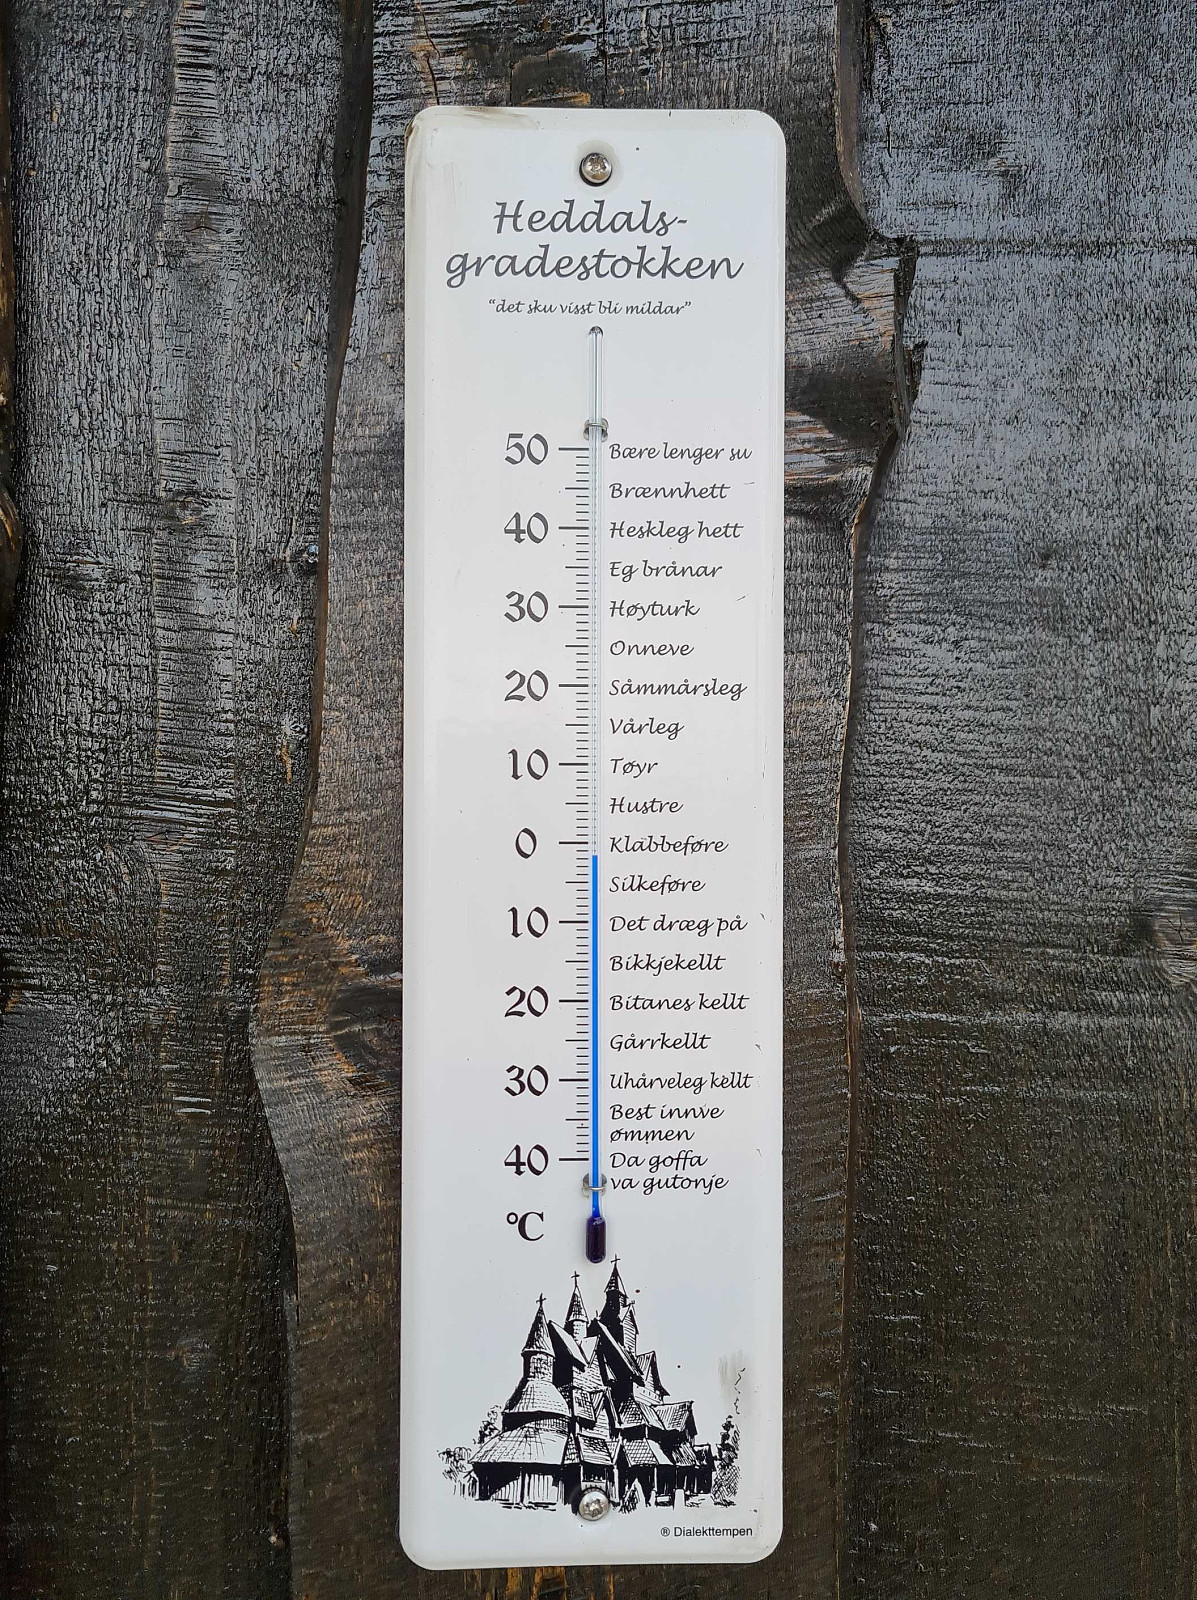 Heddals-
gradestokken
"det sku visst bli mildar"
50 Bære lenger su
Brænnhett
40 Heskleg hett
Eg brånar
30 Høyturk
Onneve
20 Såmmårsleg
Vårleg
10 Tøyr
Hustre
0 Klabbeføre
Silkeføre
10 Det dræg på
Bikkjekellt
20 Bitanes kellt
Gårrkellt
30 Uhårveleg kellt
Best innve
ømmen
40 Da goffa
va gutonje
°C
® Dialekttempen